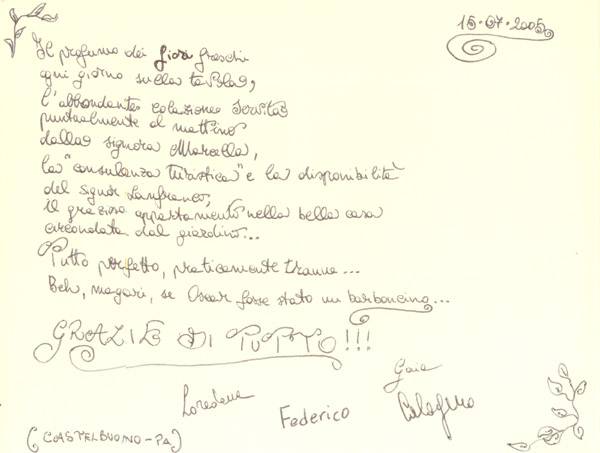 15-07-2005
Il profumo dei fiori freschi
ogni giorno sulla tavola,
l'abbondante colazione servita
puntualmente al mattino
dalla signora Marcella,
la "consulenza turistica" e la disponibilità
del signor Lanfranco,
il grazioso appartamento nella bella casa
circondata dal giardino...
Tutto perfetto, praticamente tranne...
Beh, magari, se Oscar fosse stato un barboncino...
GRAZIE DI TUTTO!!!
Gaia
Loredana Federico Calogero
(CASTELBUONO-PA)